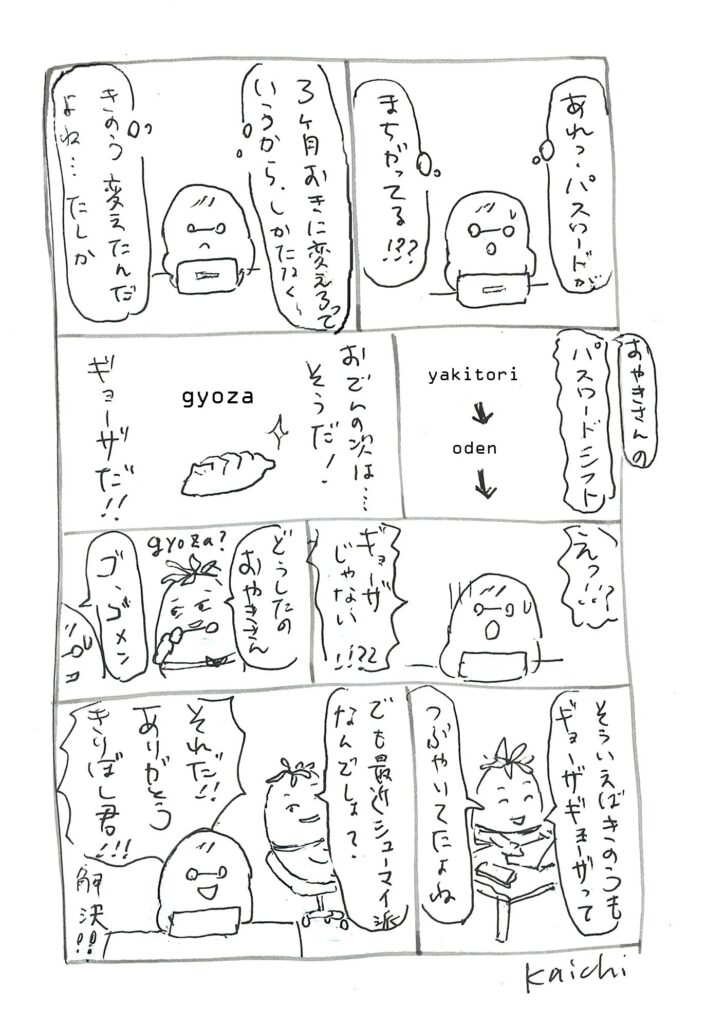 あれっ・パスワードが
まちがってる!??
3ケ月おきに変えろって
いうから、しかたなく、
きのう変えたんだ
よね…たしか
おやきさんの
パスワードシフト
yakitori
oden
おでんの次は…
そうだ!
gyoza
ギョーザだ!!
えっ!!?
ギョーザ
じゃない!!??
どうしたの
おやきさん
gyoza?
ゴ、ゴメン
そういえばきのうも
ギョーザギョーザって
つぶやいてたよね
でも最近シューマイ派
なんでしょ?
それだ!!
ありがとう
きりぼし君!!!
解決!!
Kaichi